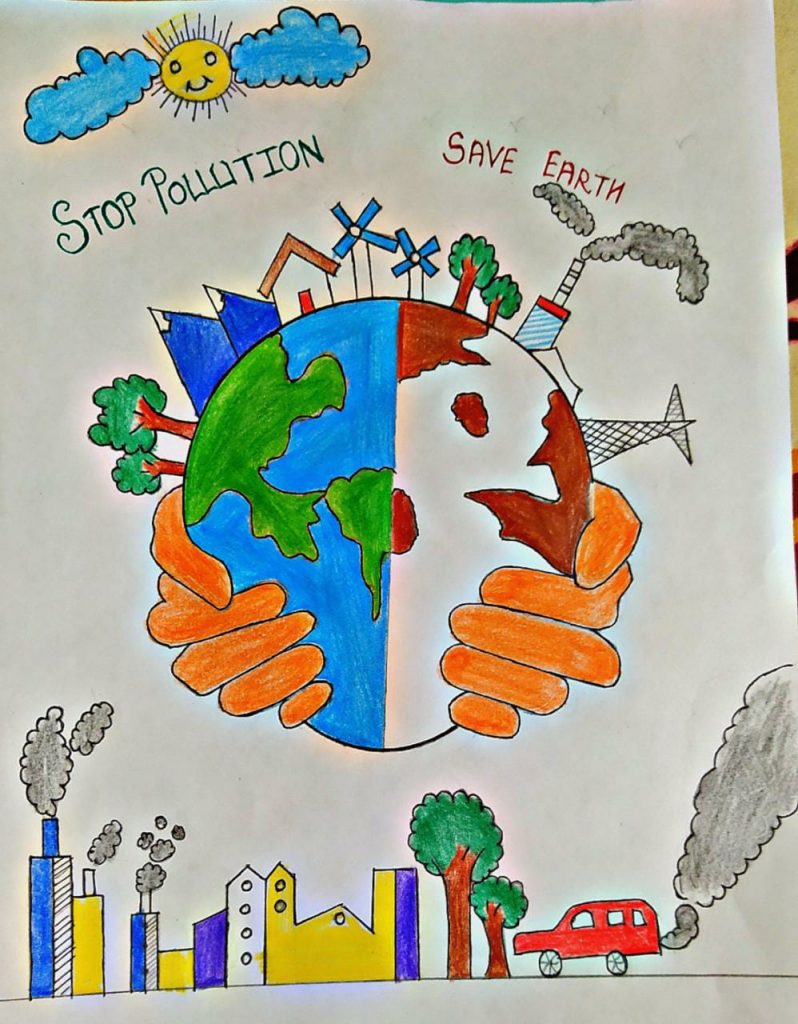 STOP POLLUTION
SAVE EARTH